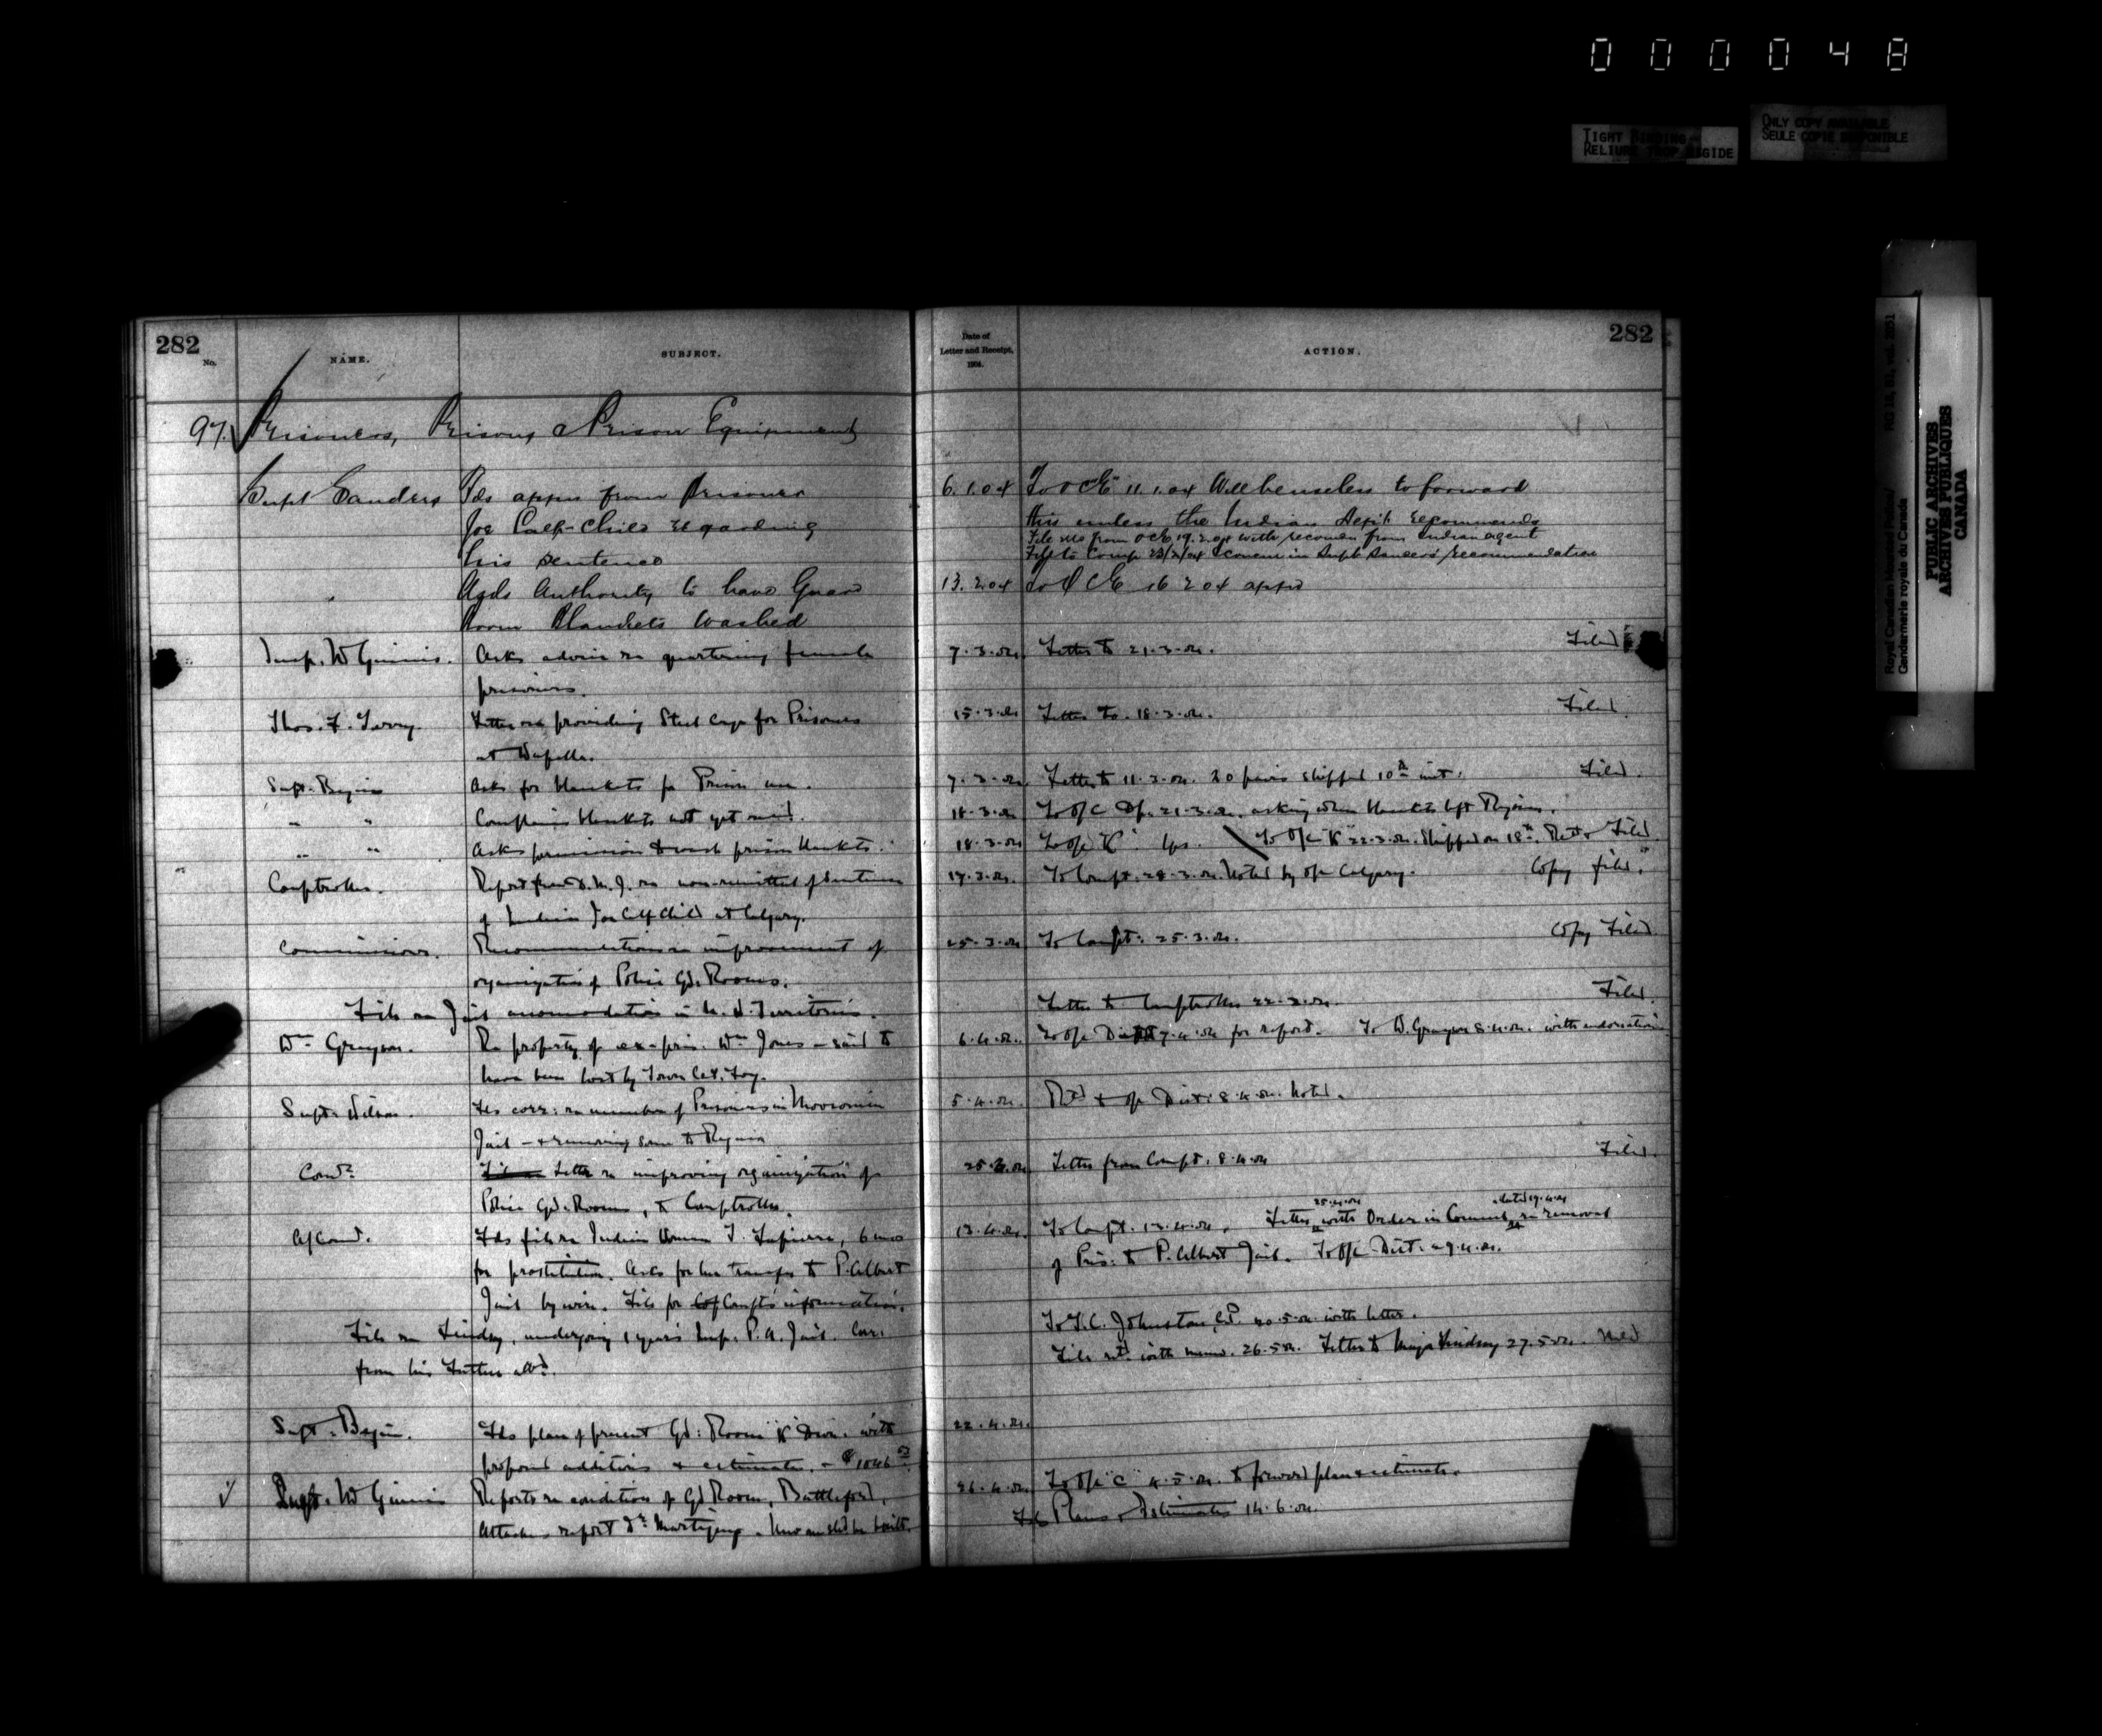 000048
TIGHT BINDING
RELIURE TROP RIGIDE
ONLY COPY AVAILABLE
SEULE COPIE DISPONIBLE
Royal Canadian Mounted Police/
Gendarmerie royale du Canada
PUBLIC ARCHIVES
ARCHIVES PUBLIQUES
CANADA
282
No.
NAME.
SUBJECT.
Date of
Letter and Receipt,
1904.
ACTION.
282
97. Prisoners, Prisons & Prison Equipment
Supt Sanders Fds appn from Prisoner 6.1.04 To O C "E" 11.1.04 Will be useless to forward
Joe Calf-Child regarding this unless the Indian Dept recommends
his sentence
File rec from O C E 19.2.04 with recommn from Indian agent
Fdd to Comp 23/2/04 & concur in Supt Sanders' recommendation
Asks Authority to have Guard 13.2.04 To O C E 16 2 04 appd
Room Blankets Washed
Insp. McGinnis. Asks advice re quartering female 7.3.04 Letter to 21.3.04. Filed
prisoners.
Thos. F. Terry. Letter re providing Steel cage for Prisoners 15.3.04 Letter to. 18.3.04. Filed.
at Wapella.
Supt. Begin Asks for blankets for Prison use. 7.3.04 Letter to 11.3.04. 20 pairs shipped 10th inst. Filed.
" " Complains blankets not yet recd. 18.3.04 To O/C Dp. 21.3.04. asking when blankets left Regina.
" " Asks permission to wash prison blankets. 18.3.04 To O/C "K" To O/C "K" 22.3.04. Shipped on 18th. Filed.
Comptroller. Report from D.M.J. re non-remittal of sentence 17.3.04. To Compt. 28.3.04. Noted by O/C Calgary. Copy filed.
of Indian Joe Calf Child at Calgary.
Commissioner. Recommendations re improvement of 25.3.04 To Compt. 25.3.04. Copy Filed
organization of Police Gd. Rooms.
File re Jail accomodation in N.W. Territories. Letter to Comptroller 22.3.04. Filed.
Wm Grayson. Re property of ex-pris. Wm Jones – said to 6.4.04. To O/C Dist 7.4.04 for report. To W. Grayson 8.4.04. with endorsation
have been lost by Town Cst. Foy.
Supt. Wilson. Fds corr: re number of Prisoners in Moosomin 5.4.04. Retd to O/C Dist: 8.4.04. Noted.
Jail – & removing some to Regina
Comr. Letter re improving organization of 25.3.04 Letter from Compt. 8.4.04 Filed.
Police Gd. Rooms, to Comptroller.
A/Comr. Fds file re Indian Woman T. Lapierre, 6 mos 13.4.04. To Compt. 13.4.04. Letter 25.4.04 with Order in Council dated 19.4.04 re removal
for prostitution. Asks for her transfer to P. Albert of Pris. to P. Albert Jail. To O/C Dist. 29.4.04.
Jail by wire. File for Compt's information.
File re Lindsay, undergoing 1 years Imp. P.A. Jail. Corr. To T.C. Johnston, C.P. 20.5.04 with letter.
from his Father attd. File retd with memo. 26.5.04. Letter to Major Lindsay 27.5.04. Filed
Supt. Begin. Fds plan of present Gd: Room "K" Divn. with 22.4.04.
proposed additions & estimate. – $1046
Supt. McGinnis Reports re condition of Gd Room, Battleford. 26.4.04 To O/C "C" 4.5.04. to forward plan & estimate.
Attaches report Dr. New one shd be built. Fds Plans & Estimates 14.6.04.